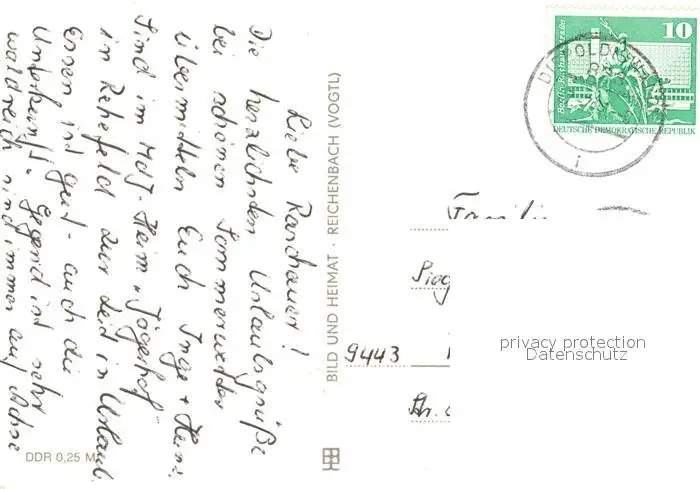 Liebe Raschauer!
Die herzlichsten Urlaubsgrüße
bei schönem Sommerwetter
übermitteln Euch Inge + Heinz
Sind im MdJ-Heim "Jägerhof"
in Rehefeld zur Zeit in Urlaub.
Essen ist gut - auch die
Unterkunft. Gegend ist sehr
waldreich sind immer auf Achse
DDR 0,25 M
BILD UND HEIMAT · REICHENBACH (VOGTL)
10
Berlin-Rathausstraße
DEUTSCHE DEMOKRATISCHE REPUBLIK
DIPPOLDISWALDE
Familie
9443
Str.
privacy protection
Datenschutz